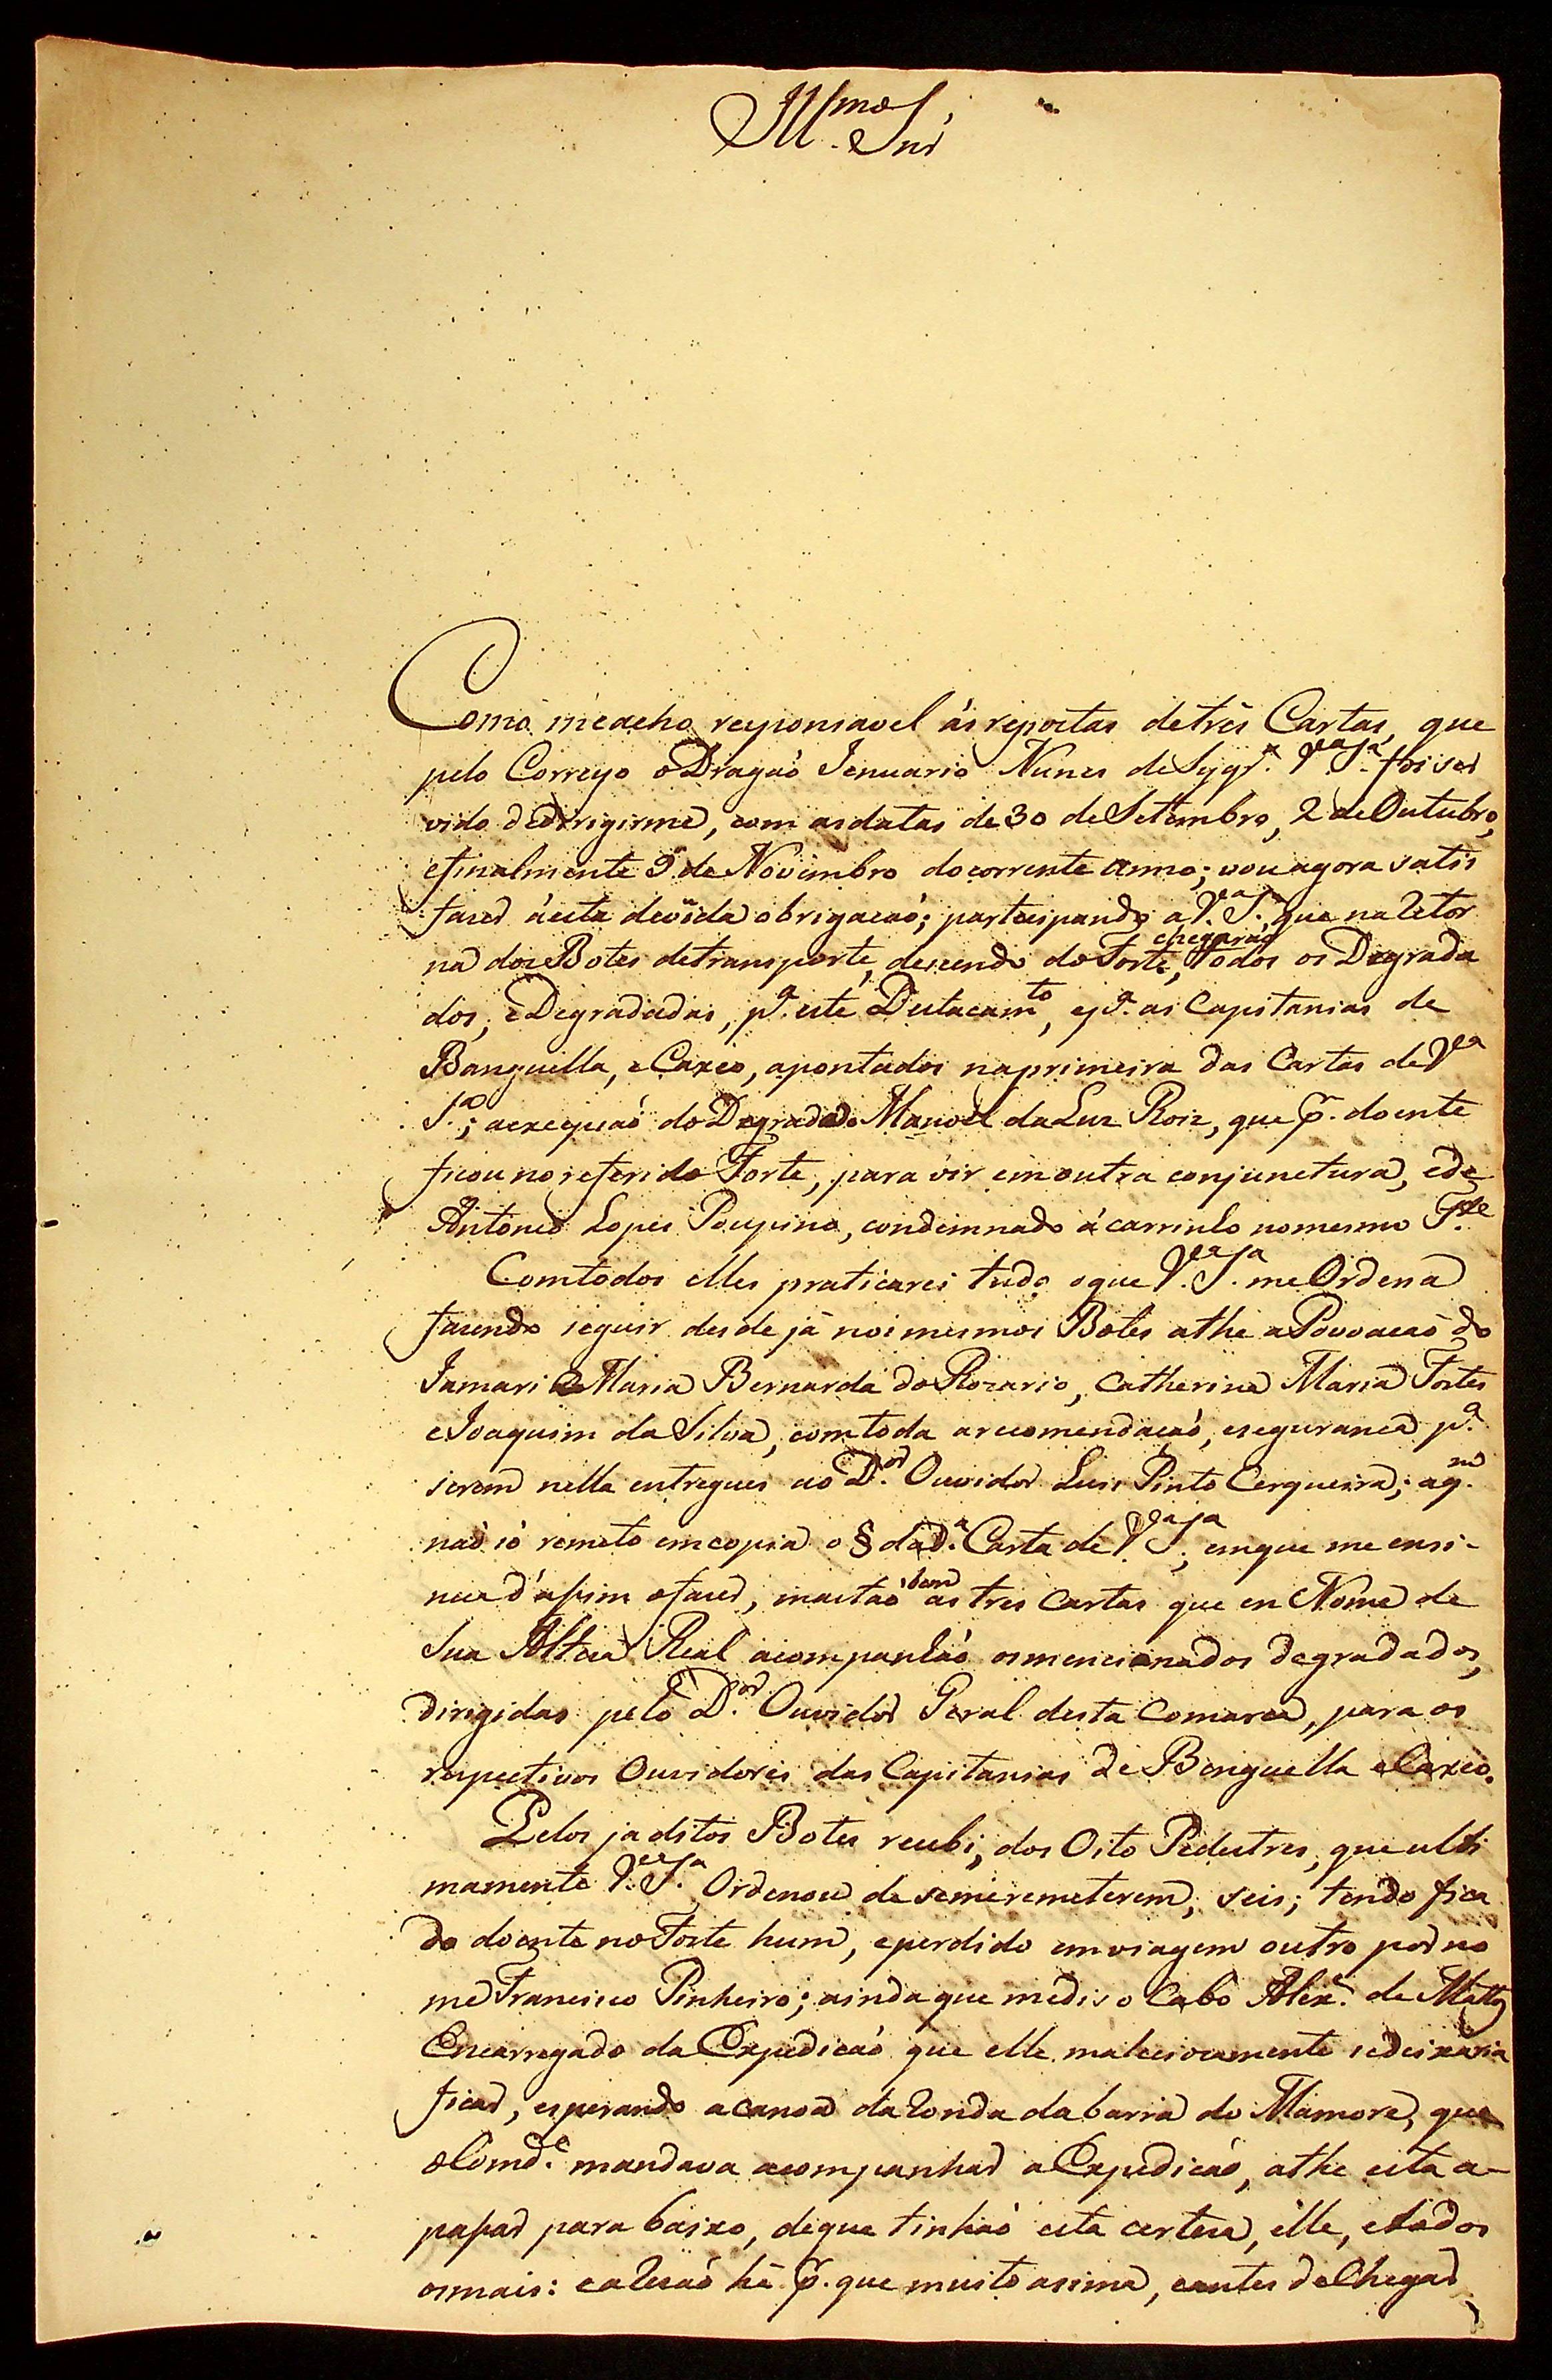 Illmo. Snr
Como me acho responsavel ás repostas de três Cartas, que
pelo Correyo o Dragaõ Jenuario Nunes de Syqr.ª V.ª S.ª foi ser
vido de dirigirme, com as datas de 30 de Setembro, 2 de Outubro,
e finalmente 9 de Novembro do corrente anno; vou agora satis
fazer á esta devida obrigaçaõ; partecipando a V.ª S.ª, que na retor
na dos Botes de transporte, descendo do Forte, chegaraõ todos os Degrada
dos, e Degradadas, p.ª este Destacam.to, e p.ª as Capitanias de
Banguella, e Caxeo, apontados na primeira das Cartas de V.ª
S.ª; a excepçaõ do Degradado Manoel da Luz Roiz, que p.r doente
ficou no referido Forte, para vir em outra conjunctura, e de
Antonio Lopes Poupino, condemnado á carrinho no mesmo F.te
Com todos elles praticarei tudo o que V.ª S.ª me Ordena
fazendo seguir des de já nos mesmos Botes athe a Povoacaõ do
Jamari a Maria Bernarda do Rozario, Catherina Maria Fortes
e Joaquim da Silva, com toda a recomendaçaõ, e seguranca p.ª
serem nella entregues ao D.or Ouvidor Luis Pinto Cerqueira; a q.m
naõ só remeto em copia o § da d.ª Carta de V.ª S.ª, em que me ensi-
nua d'assim o fazer, mas taõ bem as tres Cartas que em Nome de
Sua Alteza Real acompanhaõ os mencionados degradados,
dirigidas pelo D.or Ouvidor Geral desta Comarca, para os
respectivos Ouvidores das Capitanias de Benguella e Caxeo.
Pelos ja ditos Botes recebi, dos Oito Pedestres, que ulti
mamente V.ª S.ª Ordenou de se me remeterem, seis; tendo fica
do doente no Forte hum, e perdido em viagem outro por no
me Francisco Pinheiro; ainda que me dis o Cabo Alex.e de Mattos
Encarregado da Expediçaõ que elle maleciosamente se deixaria
ficar, esperando a canoa da ronda da barra do Mamore, que
o Comd.e mandava acompanhar a Expediçaõ, athe esta a-
passar para baixo, de que tinhaõ esta certeza, elle, e todos
os mais: e a rezaõ hé p.r que muito assima, e antes de Chegar